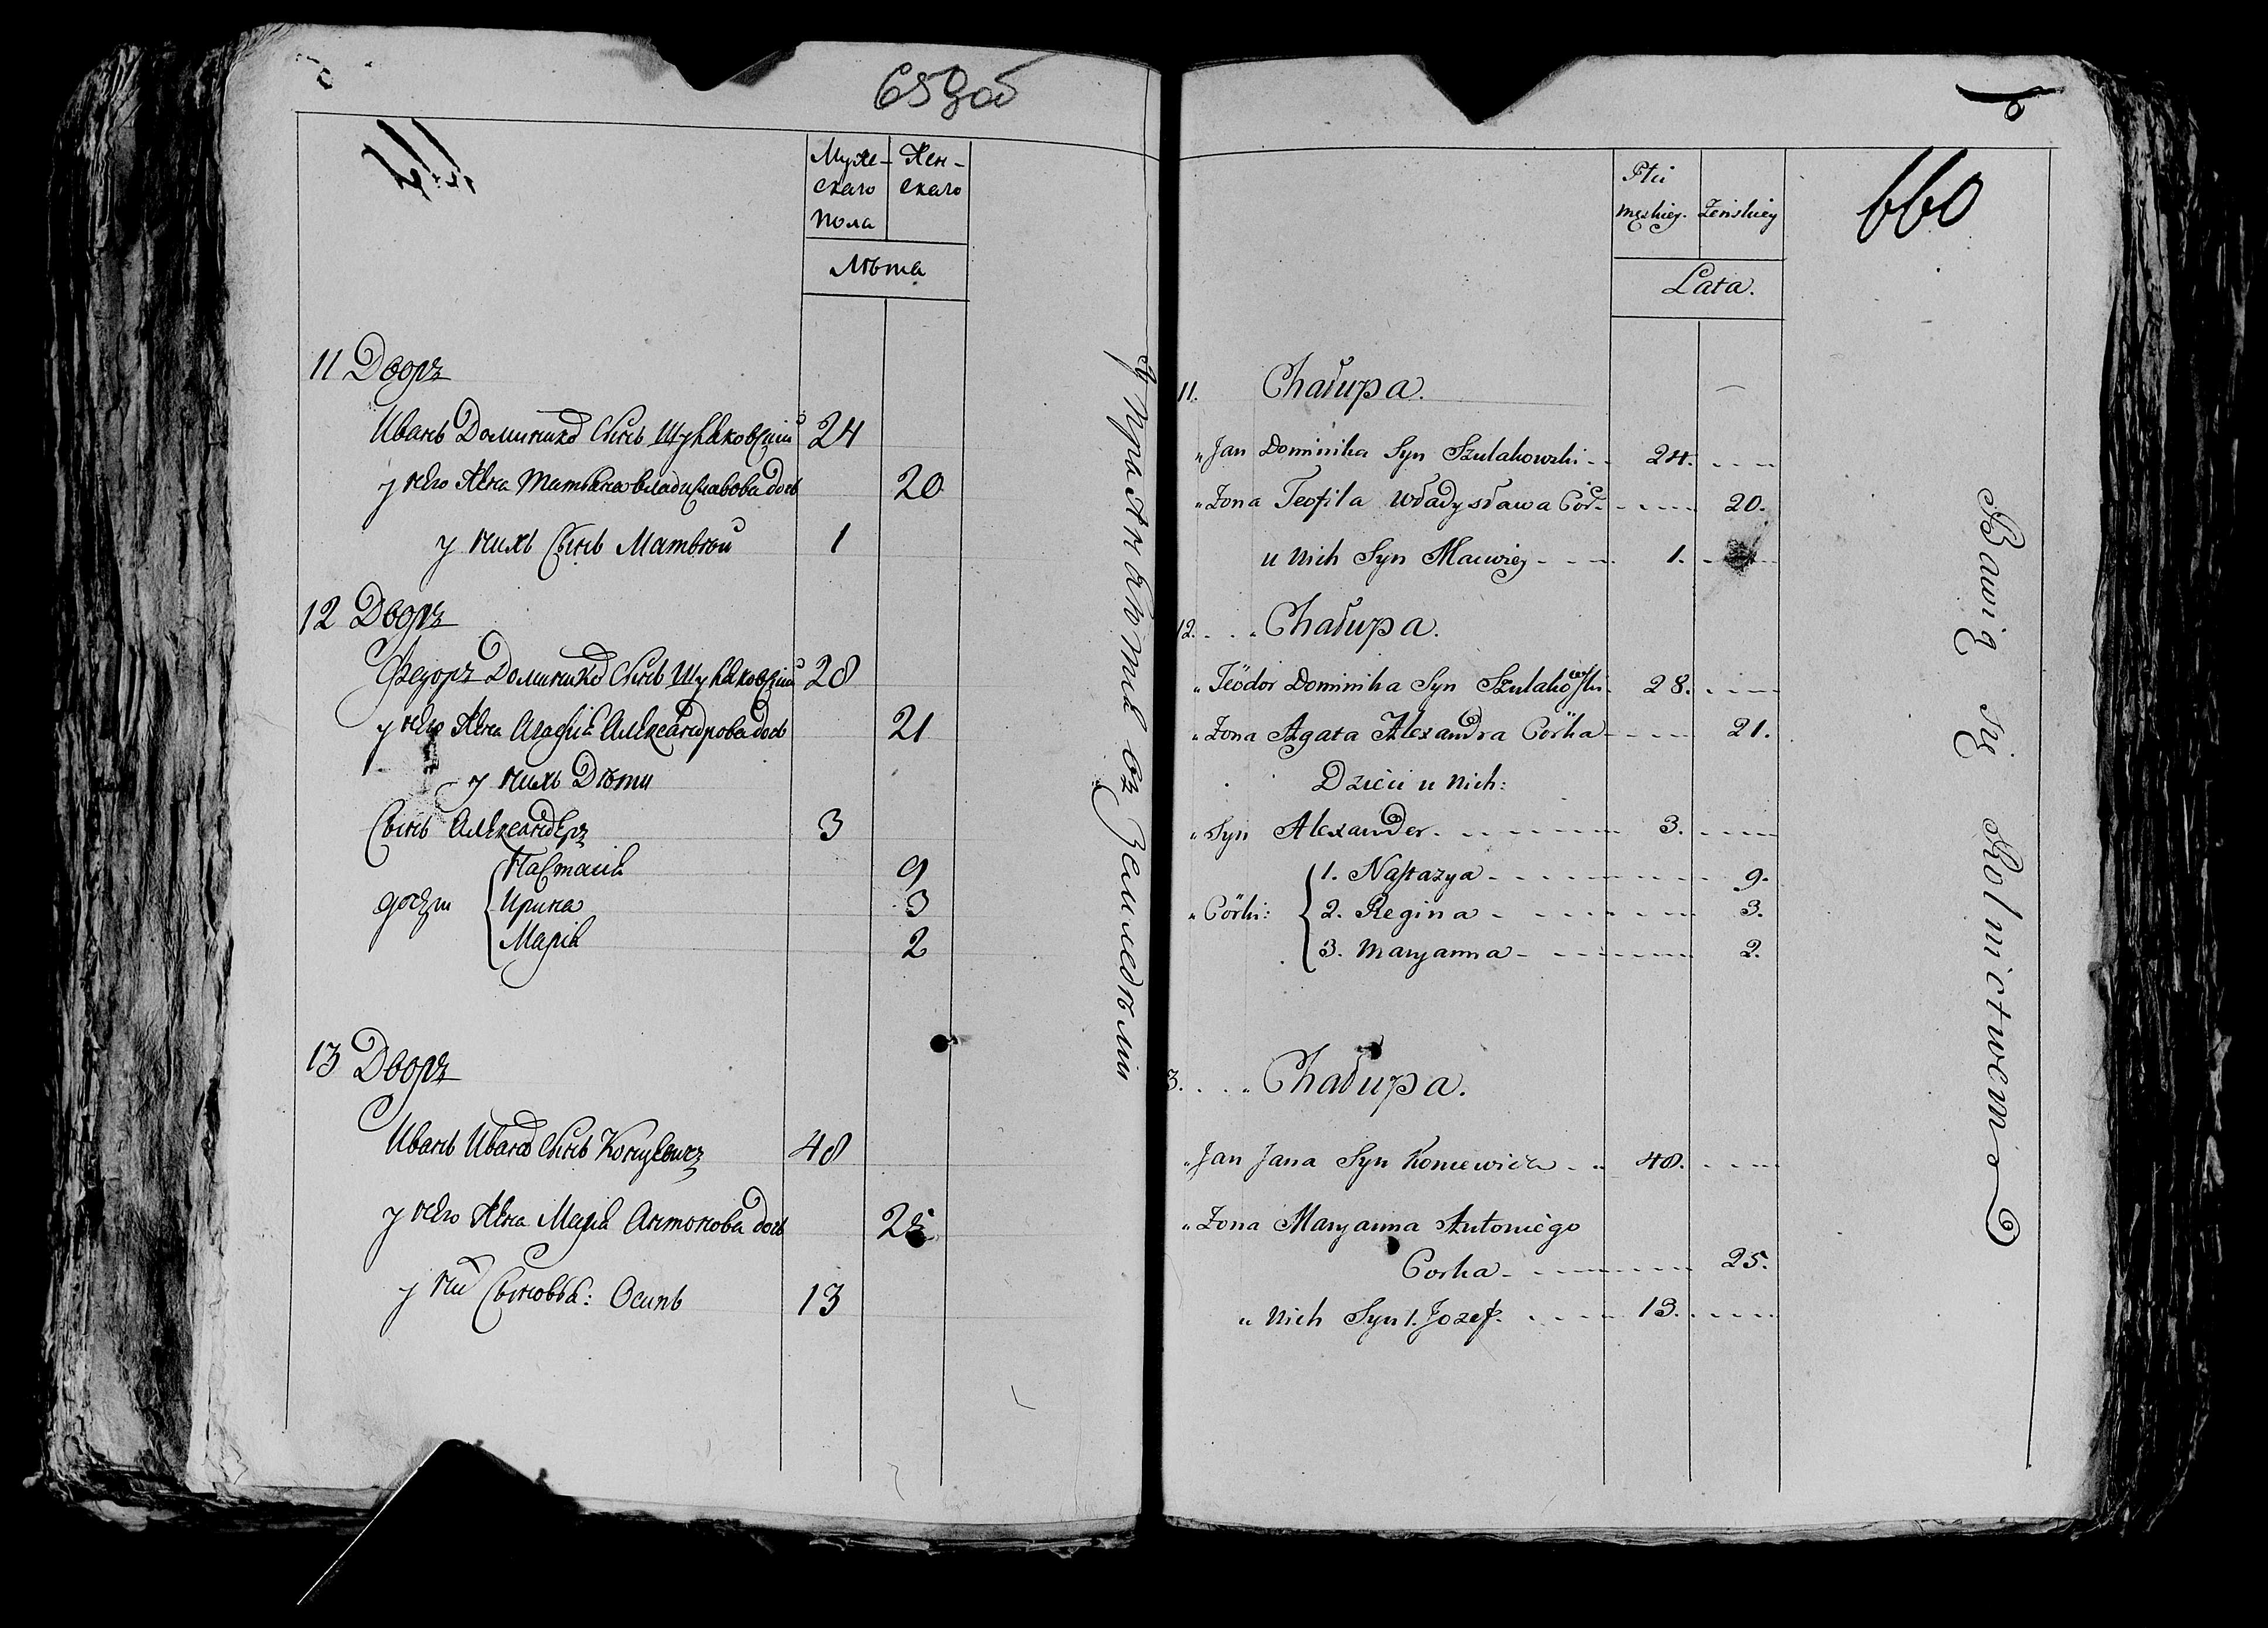 659об
Муже-
скаго
пола
Жен-
скаго
Лѣта
11 Дворъ
Иванъ Доминико Сынъ Шуляковскій 24
у него Жена Татьяна Владиславова дочь 20
у нихъ Сынъ Матвѣй 1
12 Дворъ
Федоръ Доминико Сынъ Шуляковскій 28
у него Жена Агафія Александрова дочь 21
у нихъ Дѣти
Сынъ Александеръ 3
дочери
Настасія 9
Ирина 3
Марія 2
13 Дворъ
Иванъ Ивано Сынъ Концевичъ 48
у него Жена Марія Антонова дочь 25
у ни Сыновья: Осипъ 13
Упражняются въ Земледѣліи
660
Płci
męskiey.
Zeńskiey
Lata.
11. Chałupa.
„ Jan Dominika Syn Szulakowski 24.
„ Zona Teofila Władysława Cór. 20.
u Nich Syn Maciey 1.
12. Chałupa.
„ Teodor Dominika Syn Szulakowski 28.
„ Zona Agata Alexandra Córka 21.
Dzieci u Nich:
„ Syn Alexander. 3.
„ Córki:
1. Nastazya 9.
2. Regina 3.
3. Maryanna 2.
3. Chałupa.
„ Jan Jana Syn Koncewicz 48.
„ Zona Maryanna Antoniego
Corka 25.
u Nich Syn 1. Jozef. 13.
Bawią się Rolnictwem